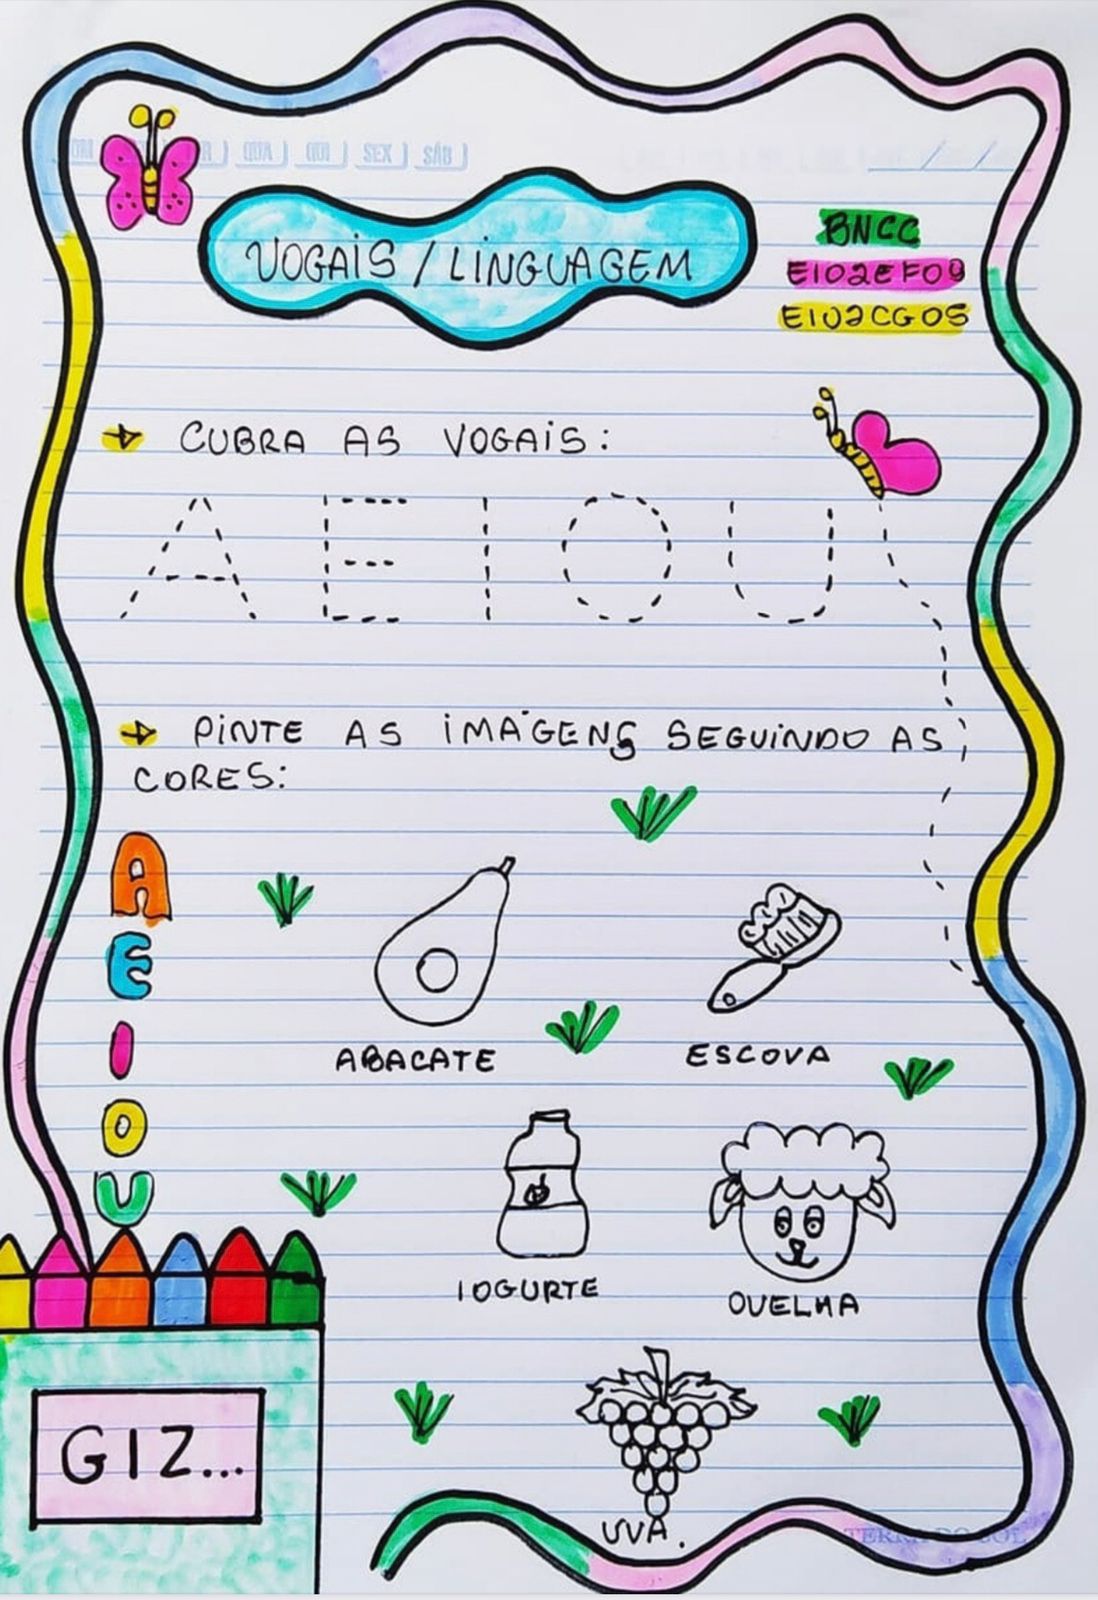 QUA QUI SEX SÁB
VOGAIS / LINGUAGEM
BNCC
EI02EF09
EI02CG05
CUBRA AS VOGAIS:
A E I O U
PINTE AS IMAGENS SEGUINDO AS
CORES:
A
E
I
O
U
ABACATE
ESCOVA
IOGURTE
OVELHA
UVA.
GIZ...
TERRA DO SOL